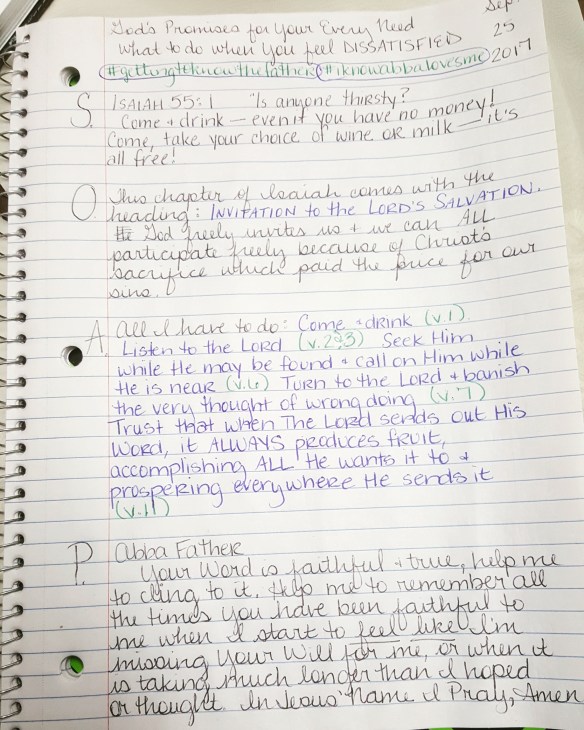 God's Promises for Your Every Need
Sep.
What to do when you feel DISSATISFIED
25
#gettingtoknowthefather #iknowabbalovesme
2017
S. ISAIAH 55:1 "Is anyone thirsty?
Come + drink — even if you have no money!
Come, take your choice of wine OR milk — it's
all free!
O This chapter of Isaiah comes with the
heading: INVITATION to the LORD'S SALVATION.
God freely invites us + we can ALL
participate freely because of Christ's
sacrifice which paid the price for our
sins.
A. All I have to do: Come + drink (v.1)
Listen to the LORD (v.2&3) Seek Him
while He may be found + call on Him while
He is near (v.6) TURN to the Lord + banish
the very thought of wrong doing (v.7)
Trust that when The LORD sends out His
WORD, it ALWAYS produces fruit,
accomplishing ALL He wants it to &
prospering everywhere He sends it
(v.11)
P. Abba Father
Your Word is faithful + true, help me
to cling to it. Help me to remember all
the times you have been faithful to
me when I start to feel like I'm
missing Your Will for me, or when it
is taking much longer than I hoped
or thought. In Jesus' name I Pray, Amen